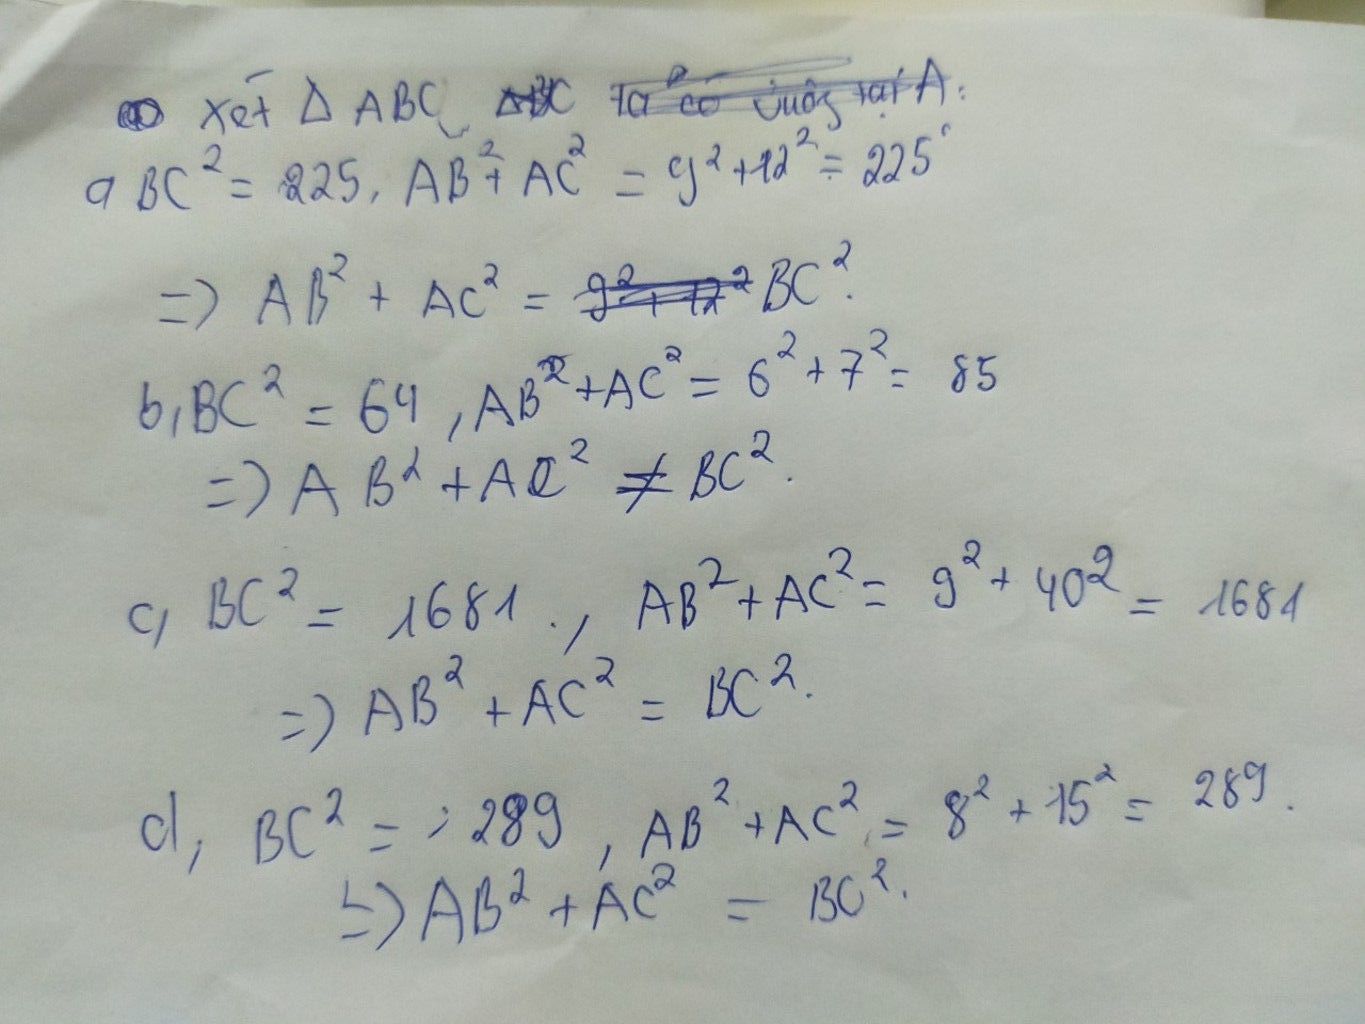 Xét Δ ABC
a BC² = 225, AB² + AC² = 9² + 12² = 225
=> AB² + AC² = BC².
b, BC² = 64, AB² + AC² = 6² + 7² = 85
=> AB² + AC² ≠ BC².
c, BC² = 1681., AB² + AC² = 9² + 40² = 1681
=> AB² + AC² = BC².
d, BC² = 289, AB² + AC² = 8² + 15² = 289.
=> AB² + AC² = BC².